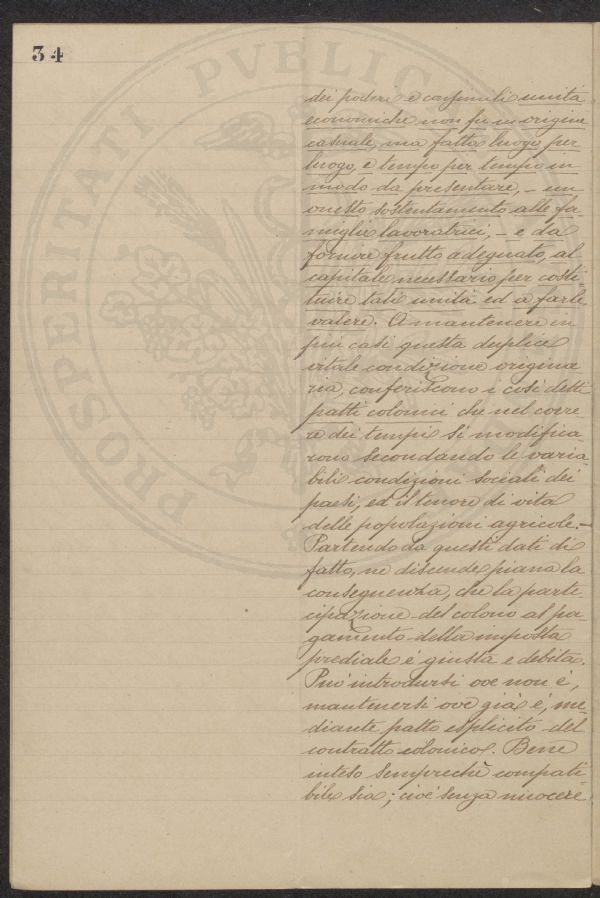 34
PROSPERITATI PVBLIC
dei poderi e consimili unità
economiche non fu in origine
casuale, ma fatta luogo per
luogo, e tempo per tempo in
modo da presentare, – un
onesto sostentamento alle fa
miglie lavoratrici, – e da
fornire frutto adeguato, al
capitale necessario per costi
tuire tali unità ed a farle
valere. A mantenere in
più casi questa duplice
vitale condizione origina
ria, conferiscono i così detti
patti colonici che nel corre
re dei tempi si modifica
rono secondando le varia
bili condizioni sociali dei
paesi, ed il tenore di vita
delle popolazioni agricole. –
Partendo da questi dati di
fatto, ne discende piana la
conseguenza, che la parte
cipazione del colono al pa
gamento della imposta
prediale è giusta e debita.
Può introdursi ove non è,
mantenersi ove già è, me
diante patto esplicito del
contratto colonico. Bene
inteso sempreché compati
bile sia; cioè senza nuocere